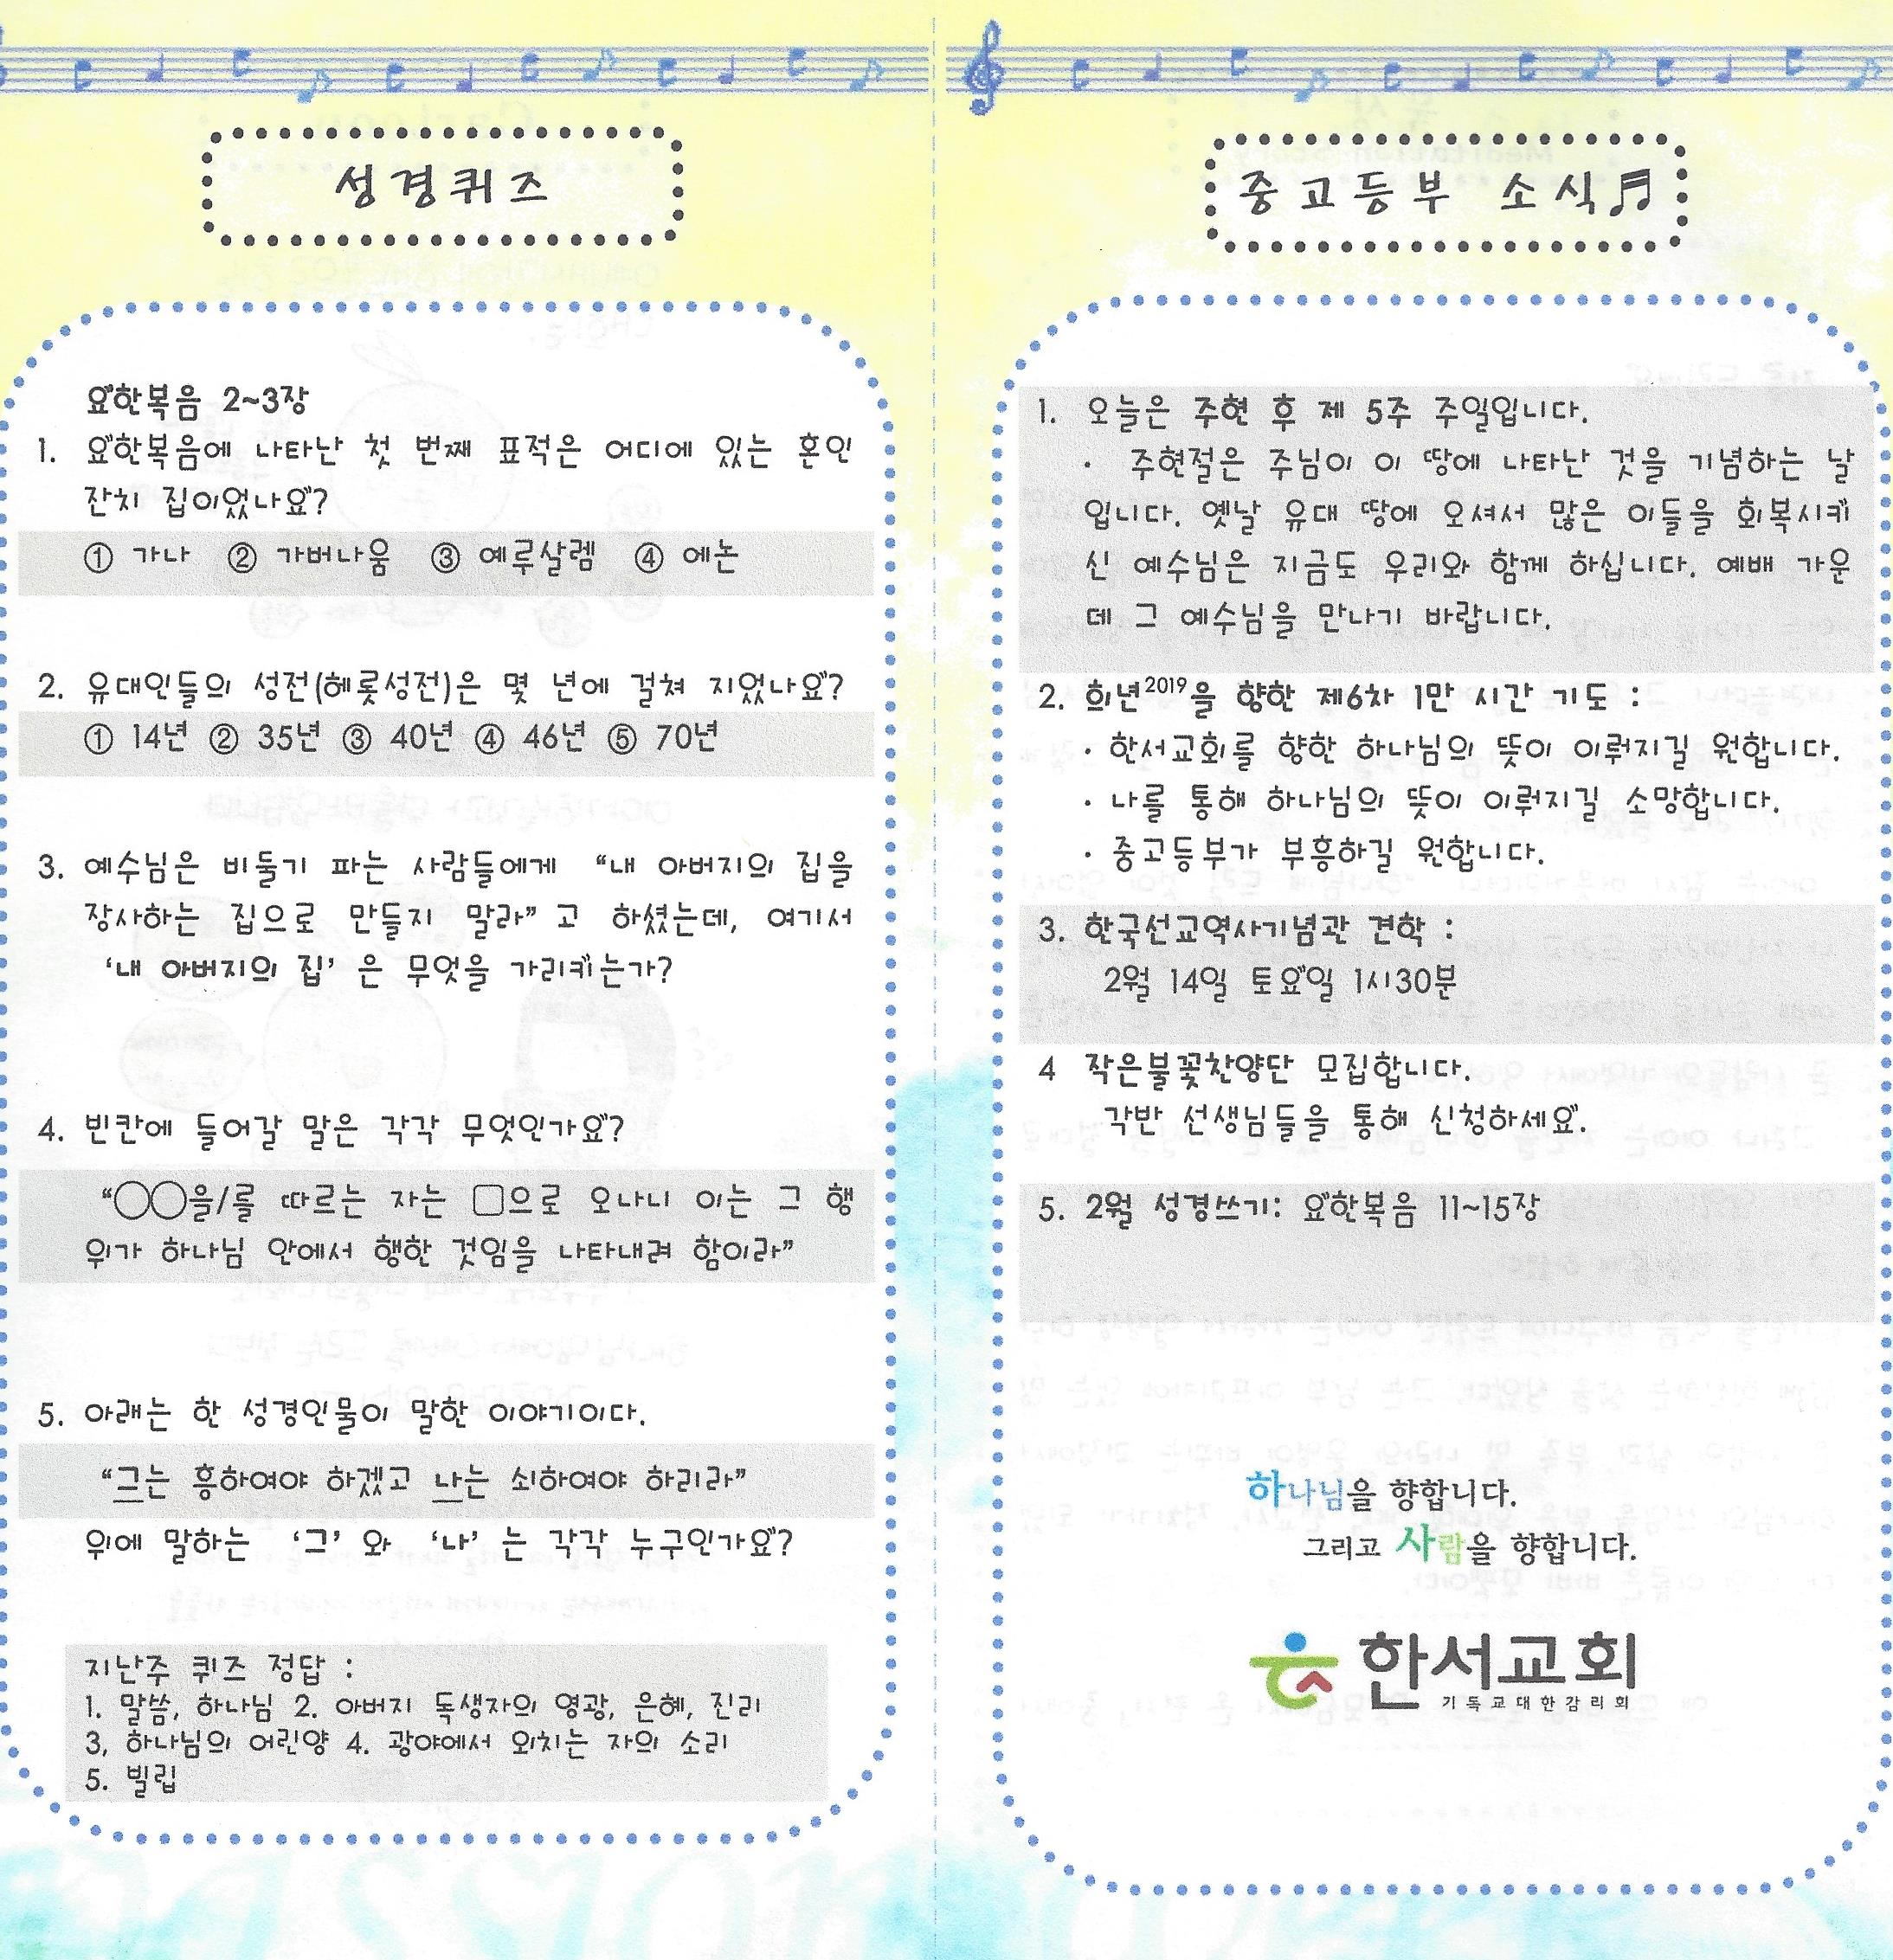 성경퀴즈
요한복음 2~3장
1. 요한복음에 나타난 첫 번째 표적은 어디에 있는 혼인
잔치 집이었나요?
① 가나 ② 가버나움 ③ 예루살렘 ④ 에논
2. 유대인들의 성전(헤롯성전)은 몇 년에 걸쳐 지었나요?
① 14년 ② 35년 ③ 40년 ④ 46년 ⑤ 70년
3. 예수님은 비둘기 파는 사람들에게 “내 아버지의 집을
장사하는 집으로 만들지 말라” 고 하셨는데, 여기서
‘내 아버지의 집’ 은 무엇을 가리키는가?
4. 빈칸에 들어갈 말은 각각 무엇인가요?
“○○을/를 따르는 자는 □으로 오나니 이는 그 행
위가 하나님 안에서 행한 것임을 나타내려 함이라”
5. 아래는 한 성경인물이 말한 이야기이다.
“그는 흥하여야 하겠고 나는 쇠하여야 하리라”
위에 말하는 ‘그’ 와 ‘나’ 는 각각 누구인가요?
지난주 퀴즈 정답 :
1. 말씀, 하나님 2. 아버지 독생자의 영광, 은혜, 진리
3, 하나님의 어린양 4. 광야에서 외치는 자의 소리
5. 빌립
중고등부 소식♬
1. 오늘은 주현 후 제 5주 주일입니다.
· 주현절은 주님이 이 땅에 나타난 것을 기념하는 날
입니다. 옛날 유대 땅에 오셔서 많은 이들을 회복시키
신 예수님은 지금도 우리와 함께 하십니다. 예배 가운
데 그 예수님을 만나기 바랍니다.
2. 희년2019을 향한 제6차 1만 시간 기도 :
· 한서교회를 향한 하나님의 뜻이 이뤄지길 원합니다.
· 나를 통해 하나님의 뜻이 이뤄지길 소망합니다.
· 중고등부가 부흥하길 원합니다.
3. 한국선교역사기념관 견학 :
2월 14일 토요일 1시30분
4 작은불꽃찬양단 모집합니다.
각반 선생님들을 통해 신청하세요.
5. 2월 성경쓰기: 요한복음 11~15장
하나님을 향합니다.
그리고 사람을 향합니다.
한서교회
기독교대한감리회